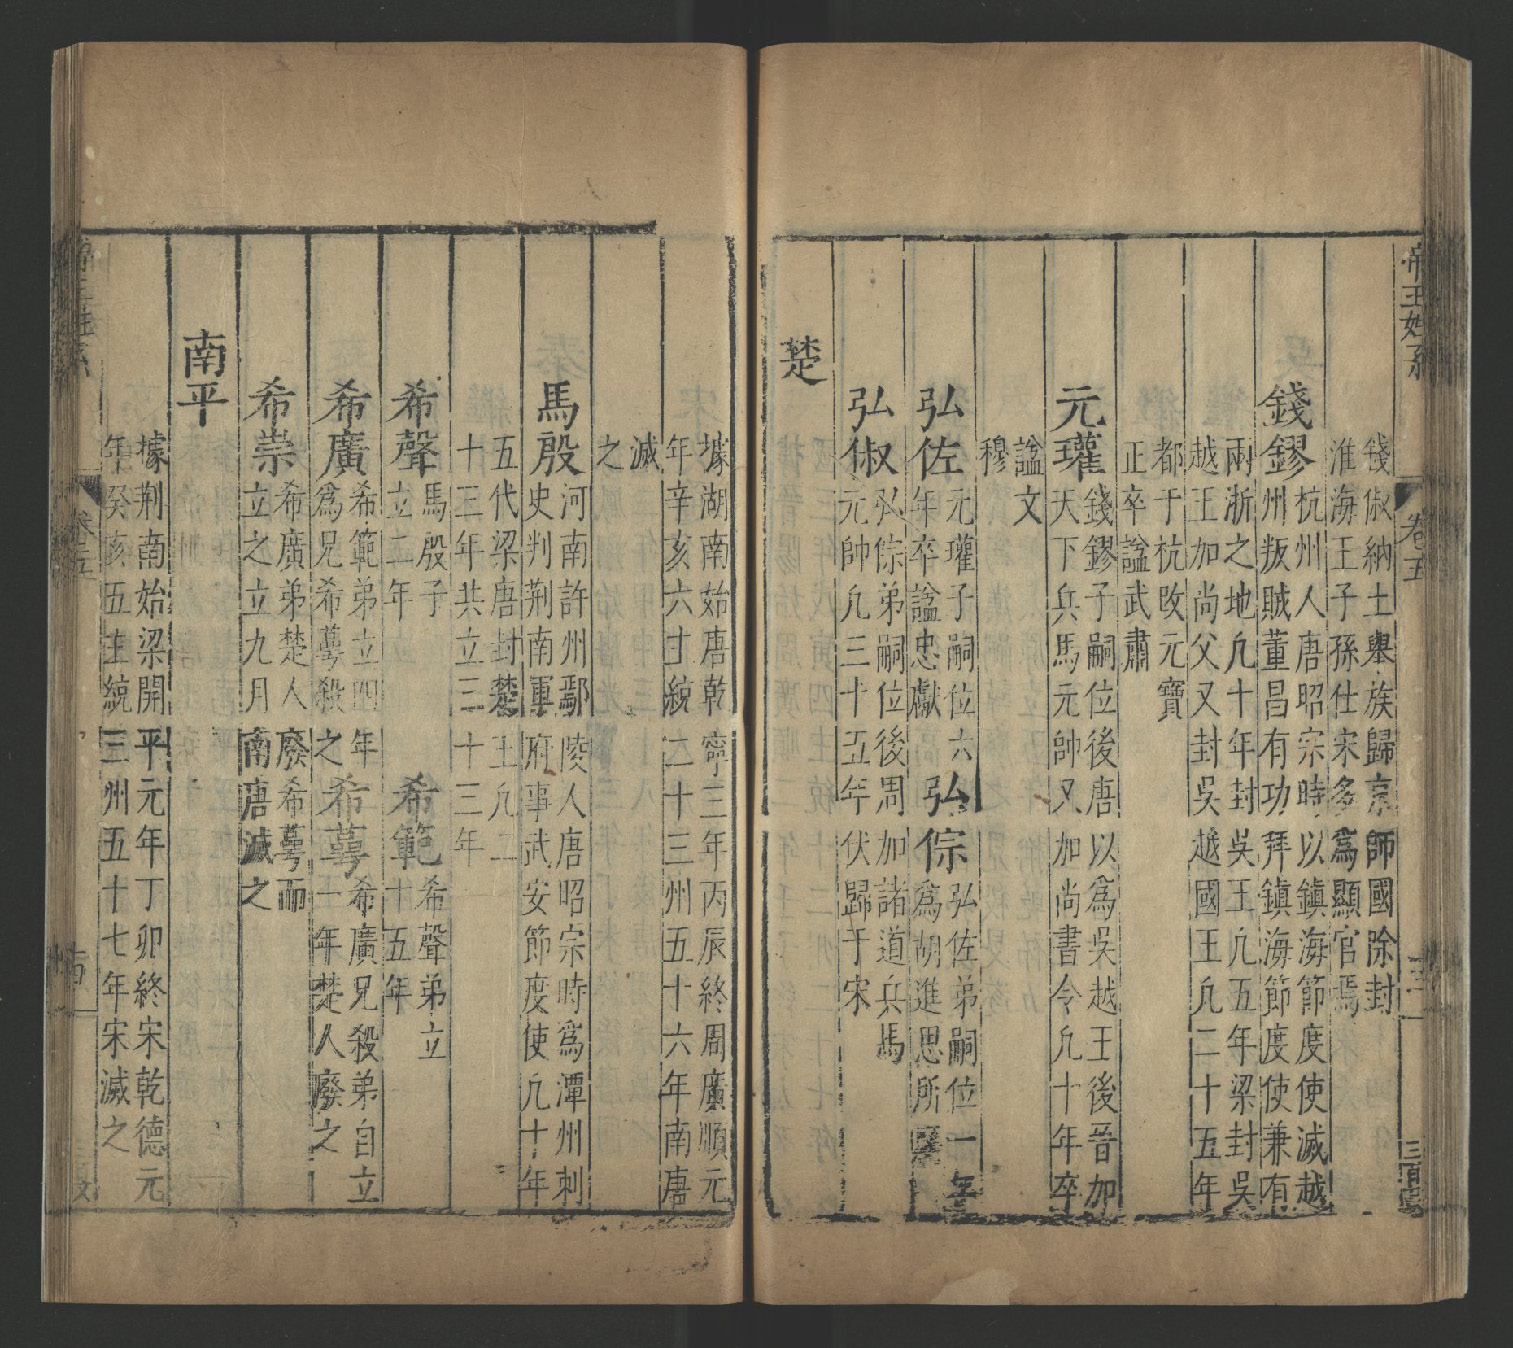 帝王姓系　卷五
俶納土舉族歸京師國除封
淮海王子孫仕宋多爲顯官焉
錢鏐
杭州人唐昭宗時以鎮海節度使滅越
州叛賊董昌有功拜鎮海節度使兼有
兩浙之地凢十年封吳王凢五年梁封吳
越王加尚父又封吳越國王凢二十五年
都于杭改元寶
正卒諡武肅
元瓘
錢鏐子嗣位後唐以爲吳越王後晉加
天下兵馬元帥又加尚書令凢十年卒
諡文
穆
弘佐
元瓘子嗣位六
年卒諡忠獻
弘倧
弘佐弟嗣位一年
爲胡進思所
弘俶
弘倧弟嗣位後周加諸道兵馬
元帥凢三十五年伏歸于宋
楚
據湖南始唐乾寧三年丙辰終周廣順元
年辛亥六主統二十三州五十六年南唐
滅
之
馬殷
河南許州鄢陵人唐昭宗時爲潭州刺
史判荆南軍府事武安節度使凢十年
五代梁唐封楚王凢二
十三年共立三十三年
希聲
馬殷子
立二年
希範
希聲弟立
十五年
希廣
希範弟立四年
爲兄希蕚殺之
希蕚
希廣兄殺弟自立
一年楚人廢之
希崇
希廣弟楚人廢希蕚而
立之立九月南唐滅之
南平
據荆南始梁開平元年丁卯終宋乾德元
年癸亥五主統三州五十七年宋滅之
卷五